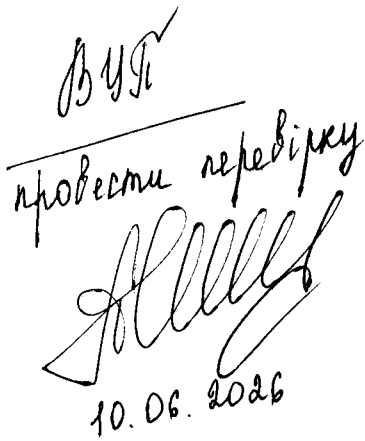 ВЦП
провести перевірку
10.06.2026